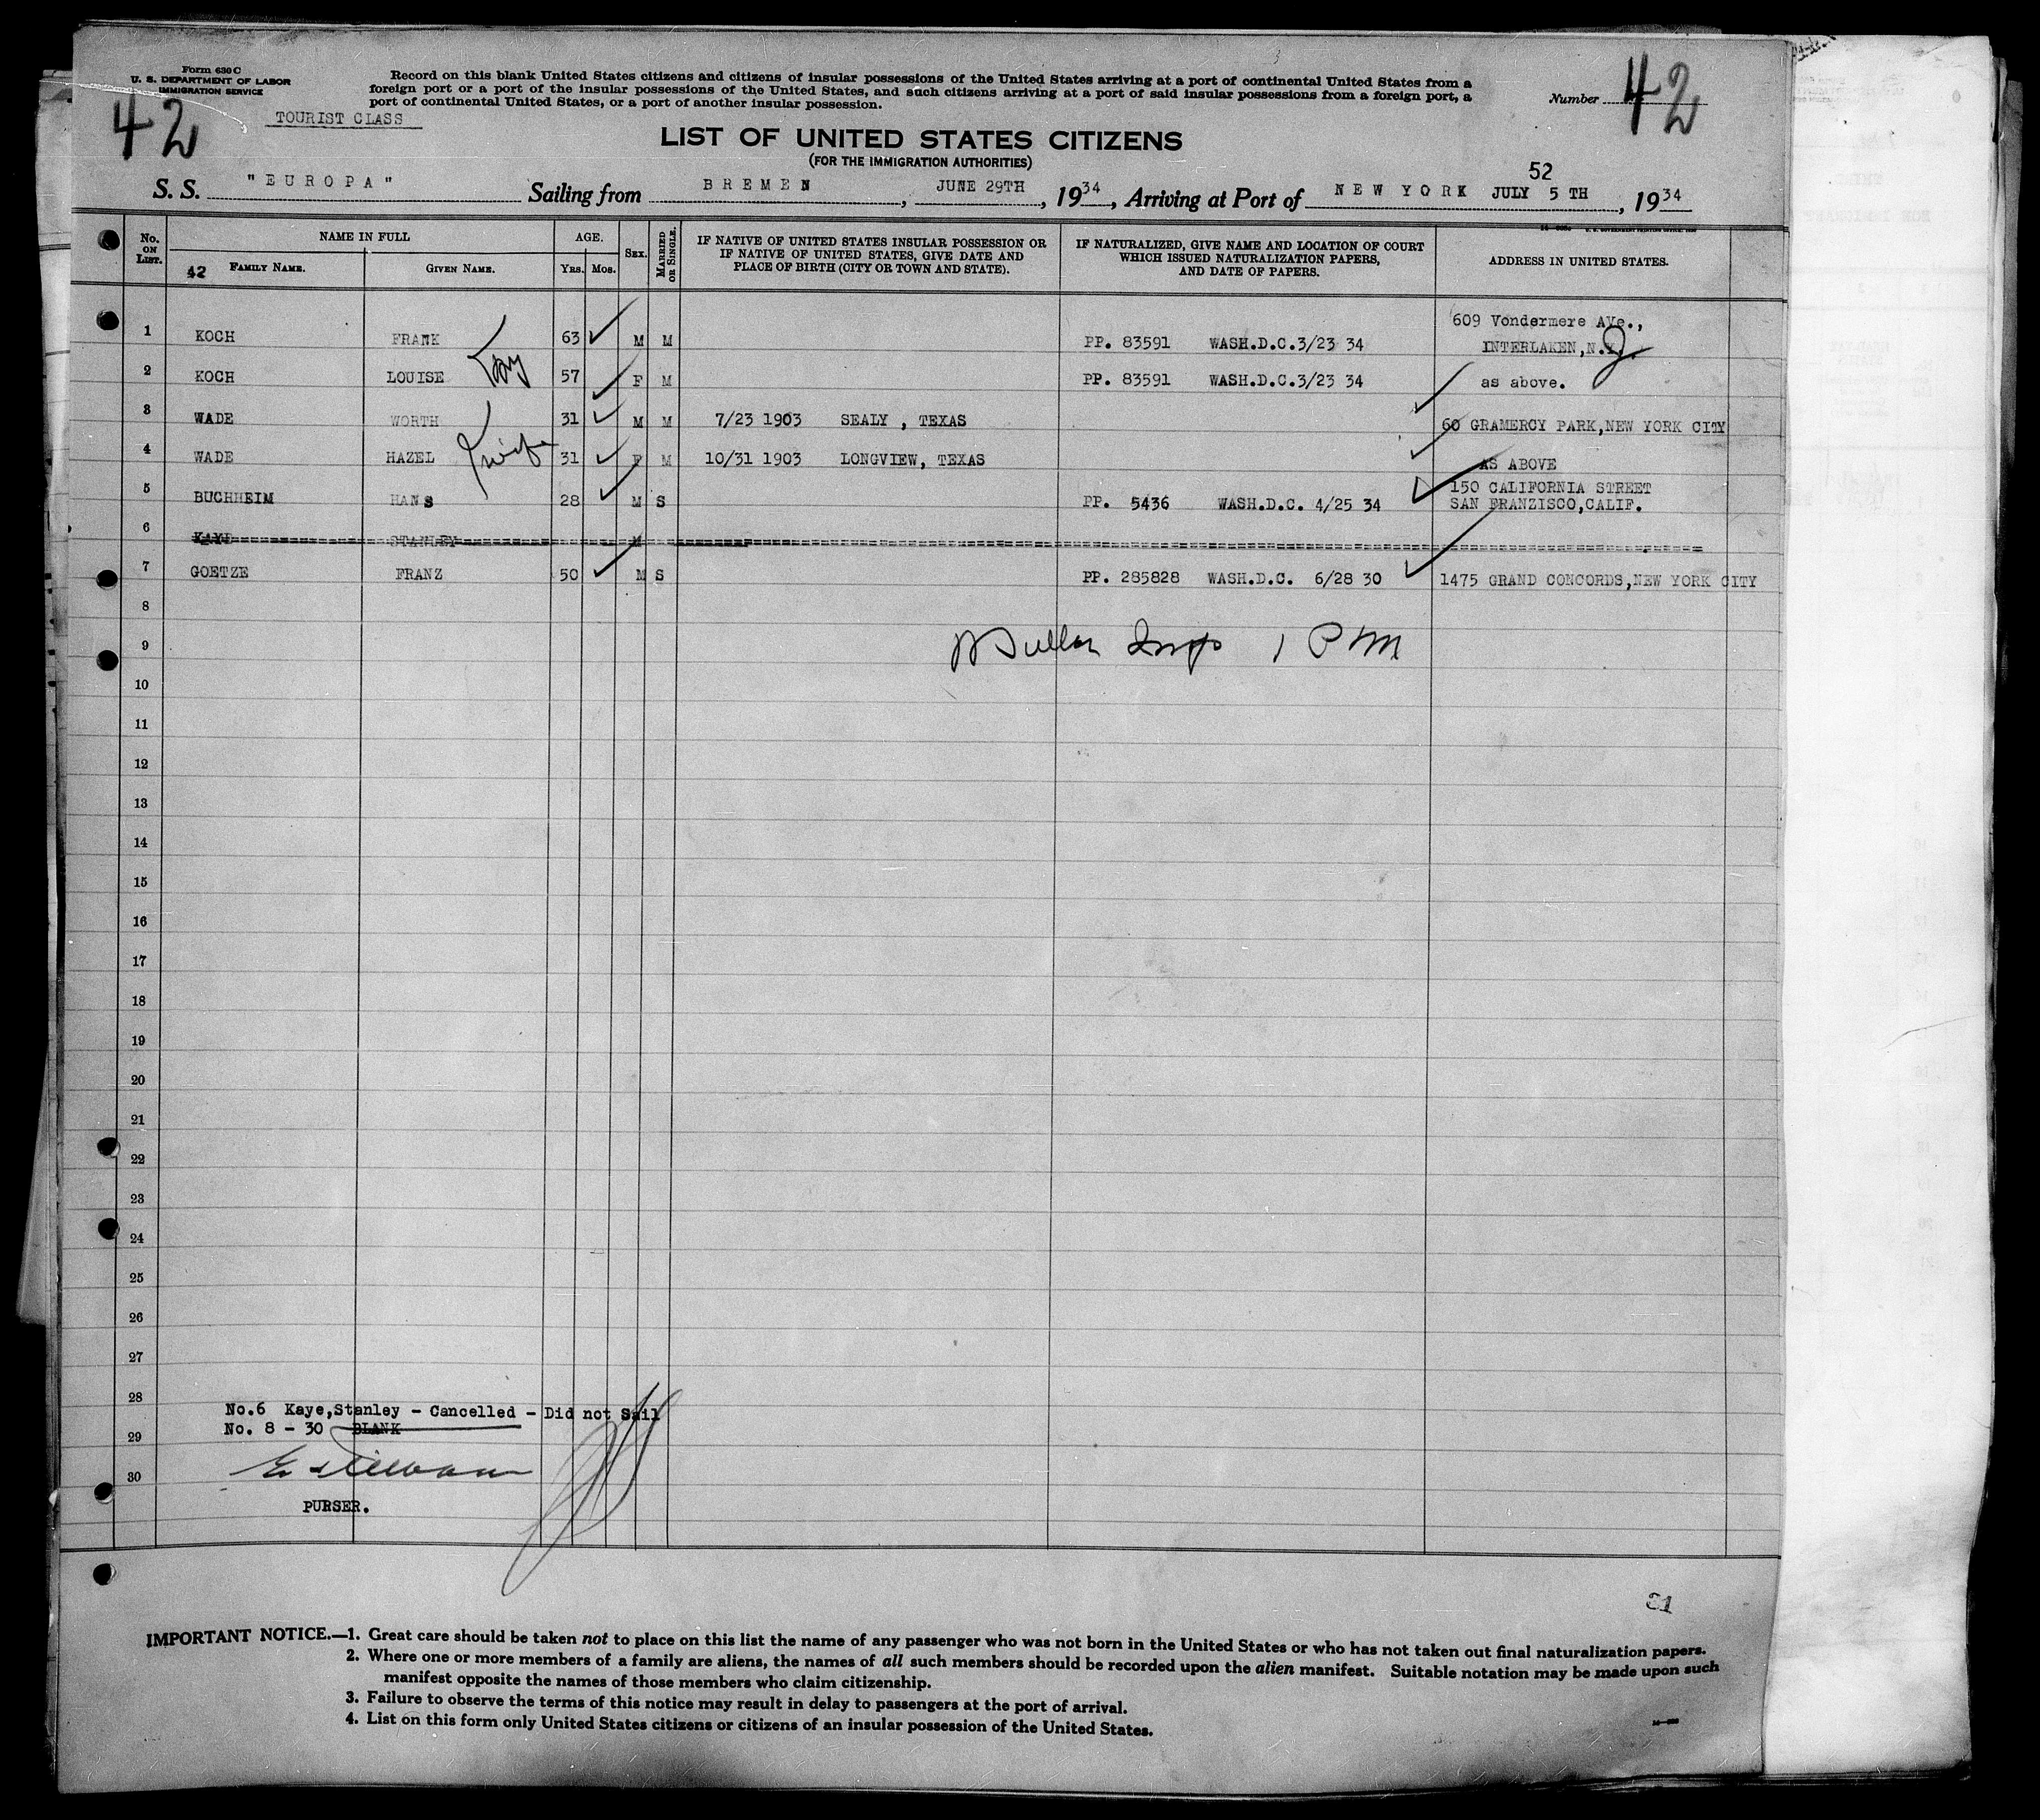 Form 630 C
U. S. DEPARTMENT OF LABOR
IMMIGRATION SERVICE
Record on this blank United States citizens and citizens of insular possessions of the United States arriving at a port of continental United States from a
foreign port or a port of the insular possessions of the United States, and such citizens arriving at a port of said insular possessions from a foreign port, a
port of continental United States, or a port of another insular possession.
Number 42
42
TOURIST CLASS
LIST OF UNITED STATES CITIZENS
(FOR THE IMMIGRATION AUTHORITIES)
52
S. S. "EUROPA" Sailing from BREMEN, JUNE 29TH, 1934, Arriving at Port of NEW YORK JULY 5 TH, 1934
No. ON LIST. NAME IN FULL AGE. SEX. MARRIED OR SINGLE. IF NATIVE OF UNITED STATES INSULAR POSSESSION OR IF NATIVE OF UNITED STATES, GIVE DATE AND PLACE OF BIRTH (CITY OR TOWN AND STATE). IF NATURALIZED, GIVE NAME AND LOCATION OF COURT WHICH ISSUED NATURALIZATION PAPERS, AND DATE OF PAPERS. ADDRESS IN UNITED STATES.
42 FAMILY NAME. GIVEN NAME. YRS. MOS.
1 KOCH FRANK 63 M M PP. 83591 WASH.D.C.3/23 34 609 Vondermere AVe.,
INTERLAKEN, N.Y.
2 KOCH LOUISE 57 F M PP. 83591 WASH.D.C.3/23 34 as above.
3 WADE WORTH 31 M M 7/23 1903 SEALY , TEXAS 60 GRAMERCY PARK,NEW YORK CITY
4 WADE HAZEL wife 31 F M 10/31 1903 LONGVIEW, TEXAS AS ABOVE
5 BUCHHEIM HANS 28 M S PP. 5436 WASH.D.C. 4/25 34 150 CALIFORNIA STREET
SAN FRANZISCO,CALIF.
6 STANLEY M
7 GOETZE FRANZ 50 M S PP. 285828 WASH.D.C. 6/28 30 1475 GRAND CONCORDS,NEW YORK CITY
8
9 Insp 1 PM
10
11
12
13
14
15
16
17
18
19
20
21
22
23
24
25
26
27
28
No.6 Kaye,Stanley - Cancelled - Did not Sail
No. 8 - 30 BLANK
29
30
PURSER.
31
IMPORTANT NOTICE.—1. Great care should be taken not to place on this list the name of any passenger who was not born in the United States or who has not taken out final naturalization papers.
2. Where one or more members of a family are aliens, the names of all such members should be recorded upon the alien manifest. Suitable notation may be made upon such
manifest opposite the names of those members who claim citizenship.
3. Failure to observe the terms of this notice may result in delay to passengers at the port of arrival.
4. List on this form only United States citizens or citizens of an insular possession of the United States.